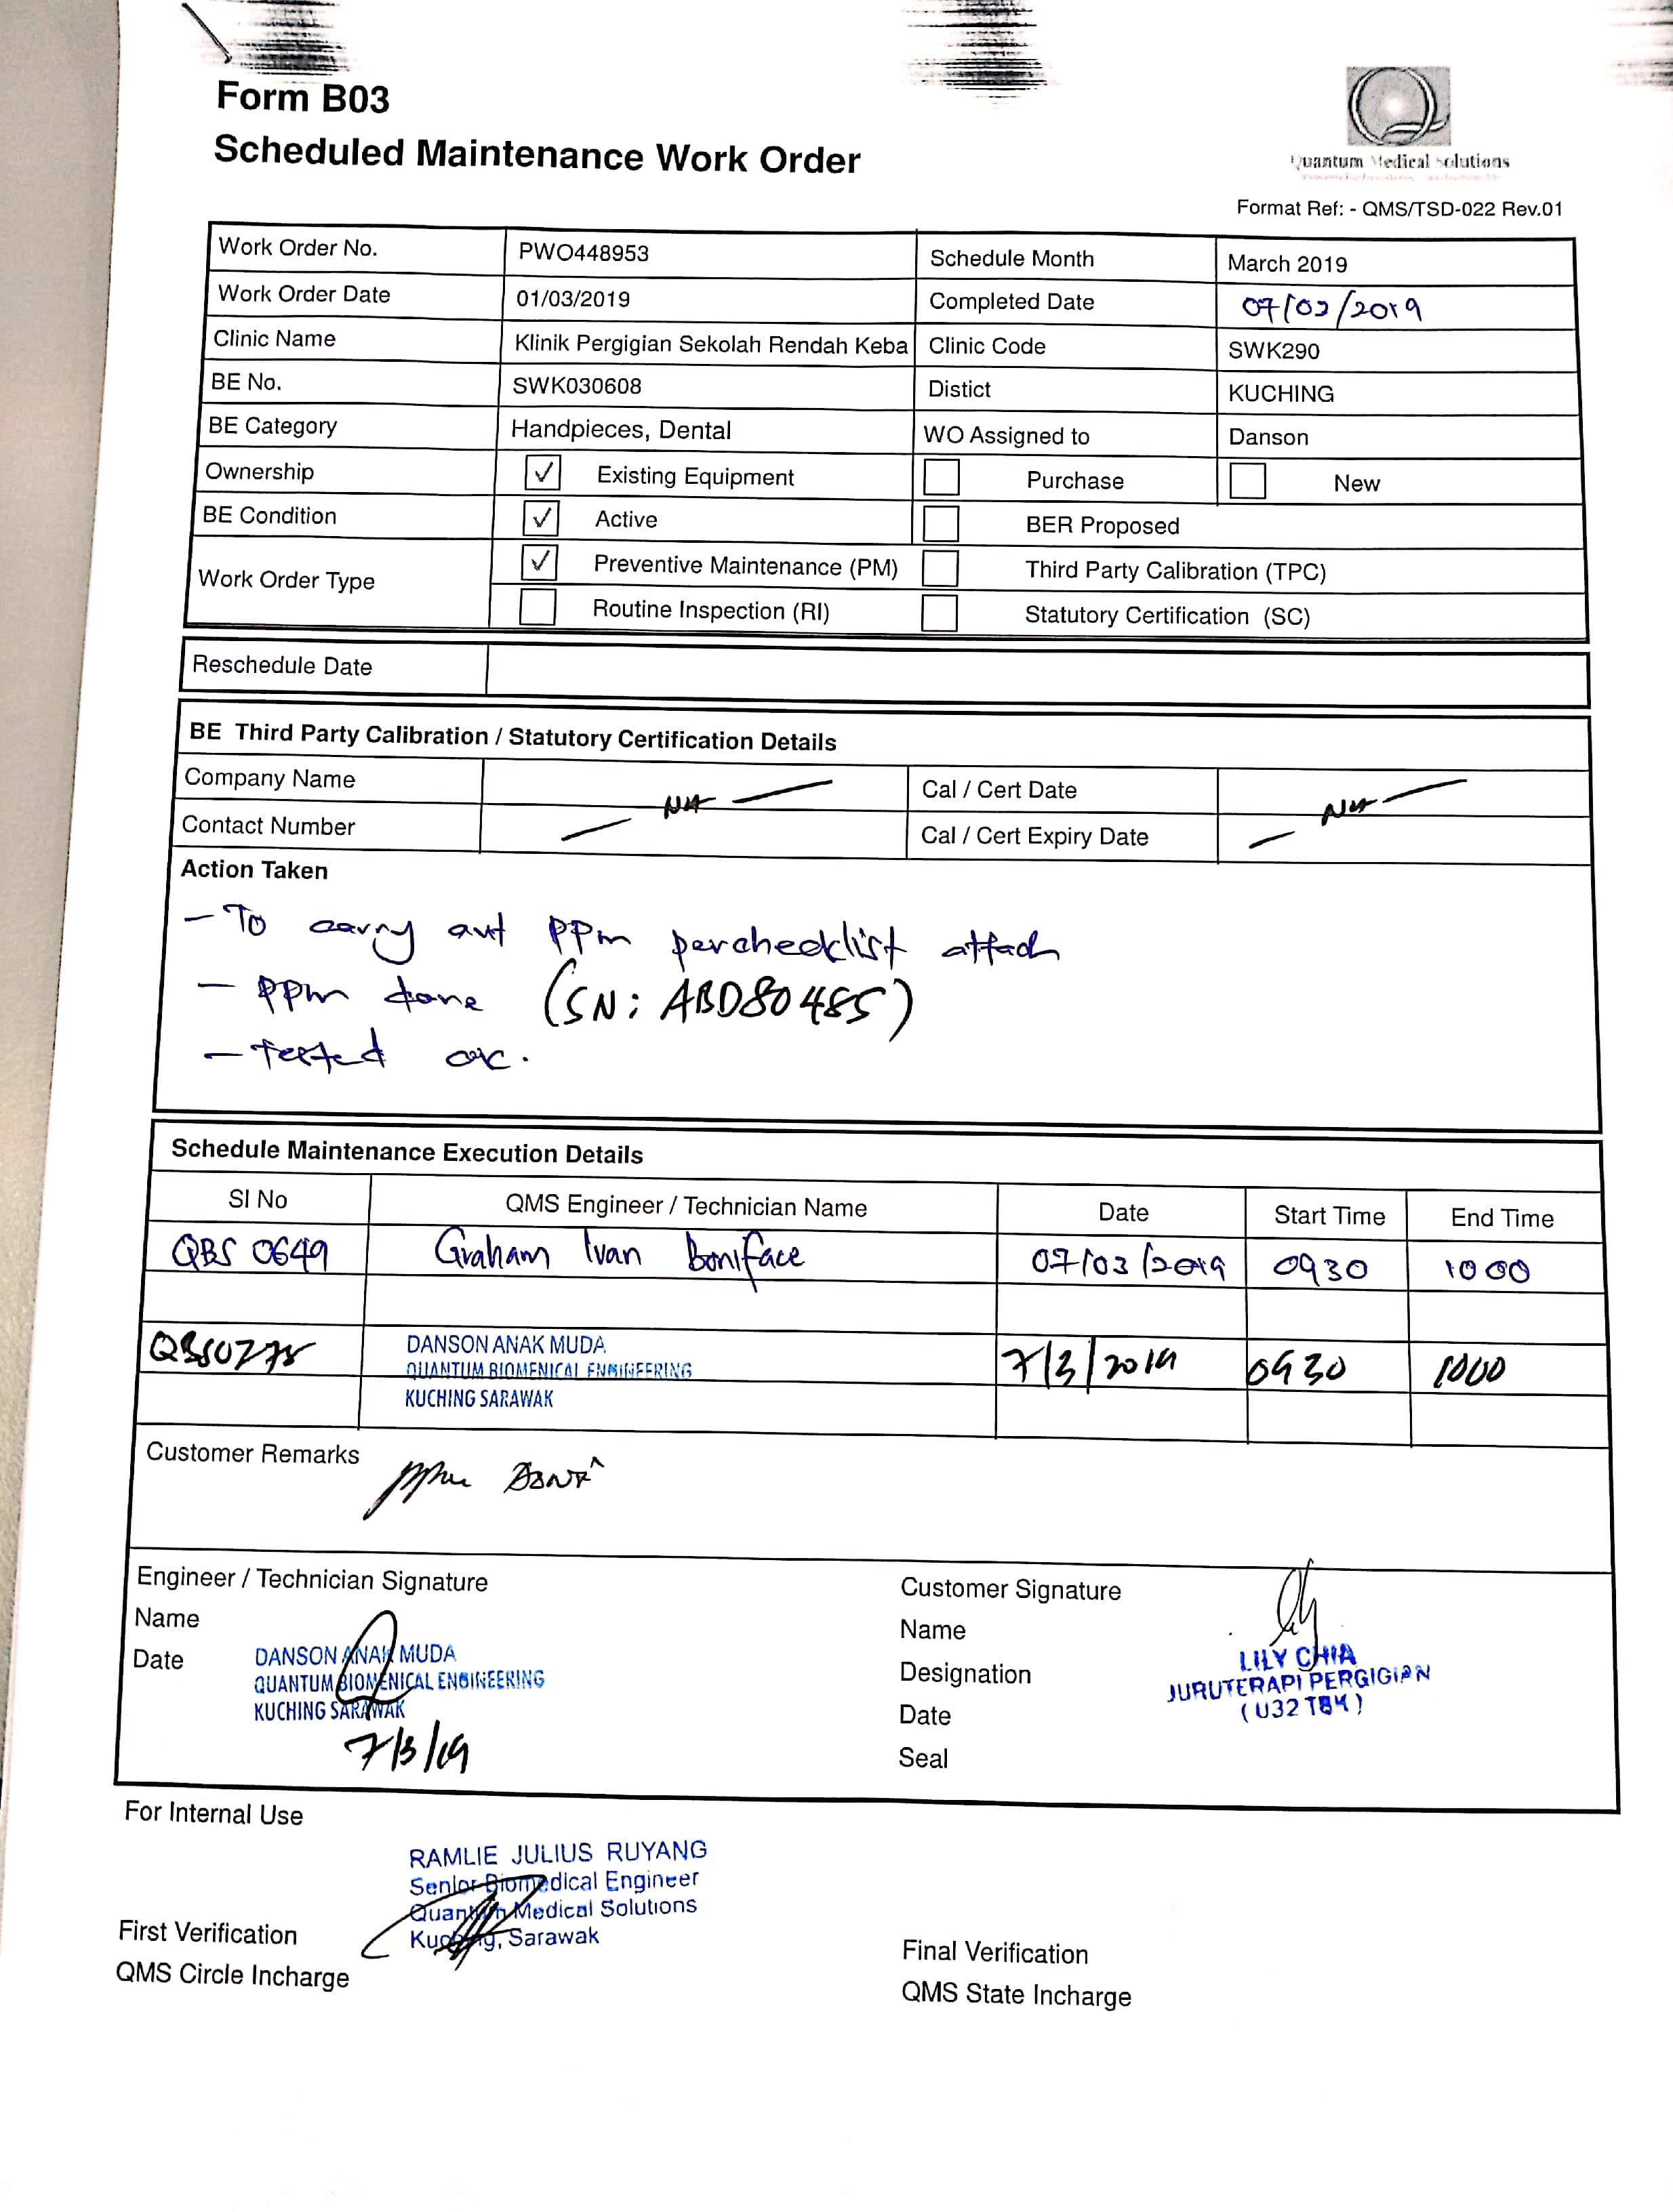 Form B03
Scheduled Maintenance Work Order
Quantum Medical Solutions
Format Ref: - QMS/TSD-022 Rev.01
Work Order No. PWO448953 Schedule Month March 2019
Work Order Date 01/03/2019 Completed Date 07/03/2019
Clinic Name Klinik Pergigian Sekolah Rendah Keba Clinic Code SWK290
BE No. SWK030608 Distict KUCHING
BE Category Handpieces, Dental WO Assigned to Danson
Ownership ✓ Existing Equipment Purchase New
BE Condition ✓ Active BER Proposed
Work Order Type ✓ Preventive Maintenance (PM) Third Party Calibration (TPC)
Routine Inspection (RI) Statutory Certification (SC)
Reschedule Date
BE Third Party Calibration / Statutory Certification Details
Company Name Cal / Cert Date
— NA — — NA —
Contact Number Cal / Cert Expiry Date
Action Taken
- To carry out PPm perchecklist attach
- PPm done (SN: ABD80485)
- Tested ok.
Schedule Maintenance Execution Details
SI No QMS Engineer / Technician Name Date Start Time End Time
QBS 0649 Graham Ivan Boniface 07/03/2019 0930 1000
QBS0278 DANSON ANAK MUDA 7/3/2019 0930 1000
QUANTUM BIOMENICAL ENGINEERING
KUCHING SARAWAK
Customer Remarks ppm Done
Engineer / Technician Signature Customer Signature
Name Name
Date DANSON ANAK MUDA LILY CHIA
QUANTUM BIOMENICAL ENGINEERING Designation JURUTERAPI PERGIGIAN
KUCHING SARAWAK Date (U32 TBK)
7/3/19 Seal
For Internal Use
RAMLIE JULIUS RUYANG
Senior Biomedical Engineer
Quantum Medical Solutions
First Verification Kuching, Sarawak Final Verification
QMS Circle Incharge QMS State Incharge